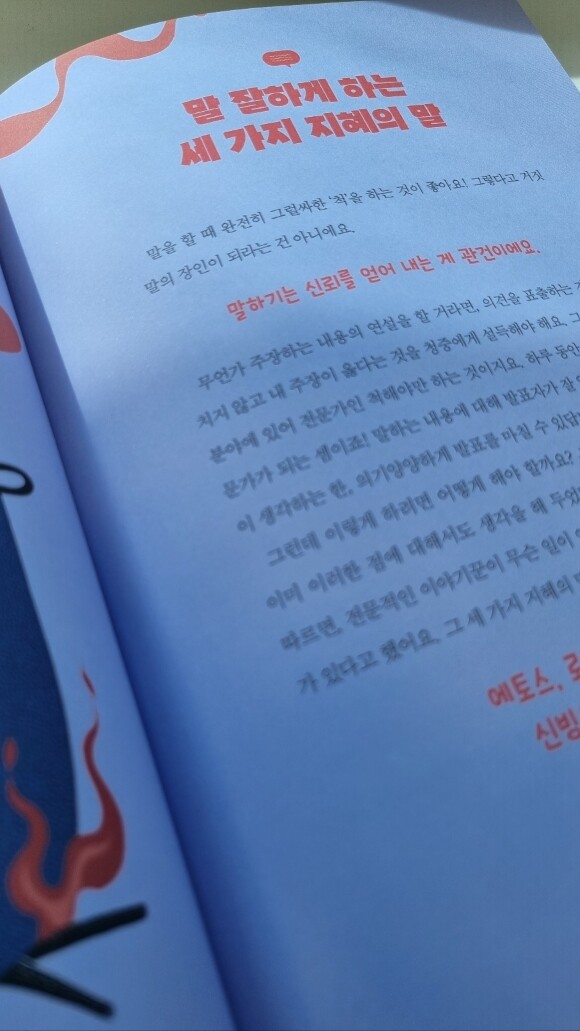 말 잘하게 하는
세 가지 지혜의 말
말을 할 때 완전히 그럴싸한 '척'을 하는 것이 좋아요! 그렇다고 거짓
말의 장인이 되라는 건 아니에요.
말하기는 신뢰를 얻어 내는 게 관건이에요.
무언가 주장하는 내용의 연설을 할 거라면, 의견을 표출하는
치지 않고 내 주장이 옳다는 것을 청중에게 설득해야 해요.
분야에 있어 전문가인 척해야만 하는 것이지요. 하루 동안
문가가 되는 셈이죠! 말하는 내용에 대해 발표자가 잘
이 생각하는 한, 의기양양하게 발표를 마칠 수 있답
그런데 이렇게 하려면 어떻게 해야 할까요?
이미 이러한 점에 대해서도 생각을 해 두었
따르면, 전문적인 이야기꾼이 무슨 일이
가 있다고 했어요. 그 세 가지 지혜의
에토스,
신빙